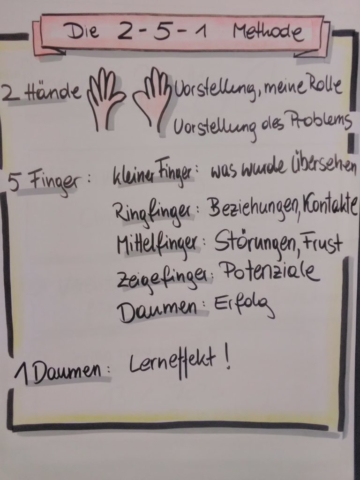 Die 2-5-1 Methode
2 Hände Vorstellung, meine Rolle
Vorstellung des Problems
5 Finger: kleiner Finger: was wurde übersehen
Ringfinger: Beziehungen, Kontakte
Mittelfinger: Störungen, Frust
Zeigefinger: Potenziale
Daumen: Erfolg
1 Daumen: Lerneffekt!